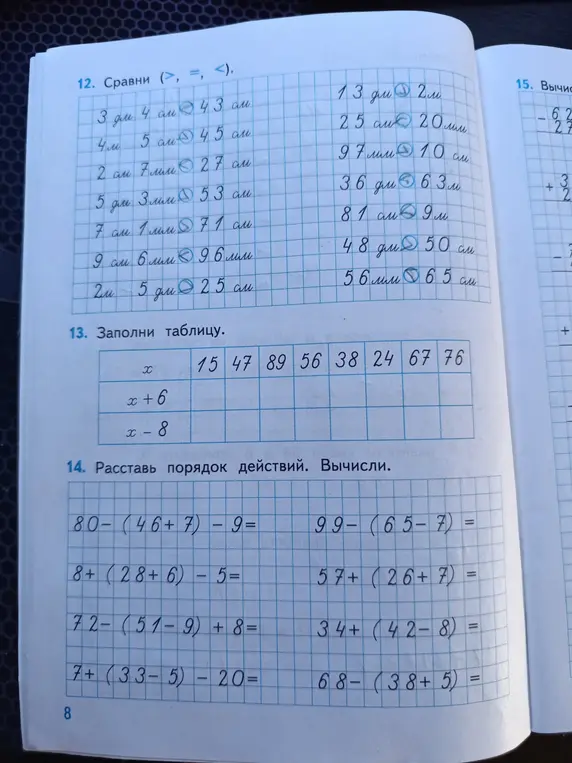 12. Сравни (>, =, <).
3 дм 4 см 43 см
4м 5 см 45 см
2 см 7мм 27 см
5 дм 3мм 53 см
7 см 1мм 71 см
9 см 6мм 96мм
2м 5 дм 25 см
13 дм 2м
25 см 20мм
97мм 10 см
36 дм 63м
81 см 9м
48 дм 50 см
56мм 65 см
13. Заполни таблицу.
x 15 47 89 56 38 24 67 76
x + 6
x – 8
14. Расставь порядок действий. Вычисли.
80 – (46 + 7) – 9 =
8 + (28 + 6) – 5 =
72 – (51 – 9) + 8 =
7 + (33 – 5) – 20 =
99 – (65 – 7) =
57 + (26 + 7) =
34 + (42 – 8) =
68 – (38 + 5) =
8
15.